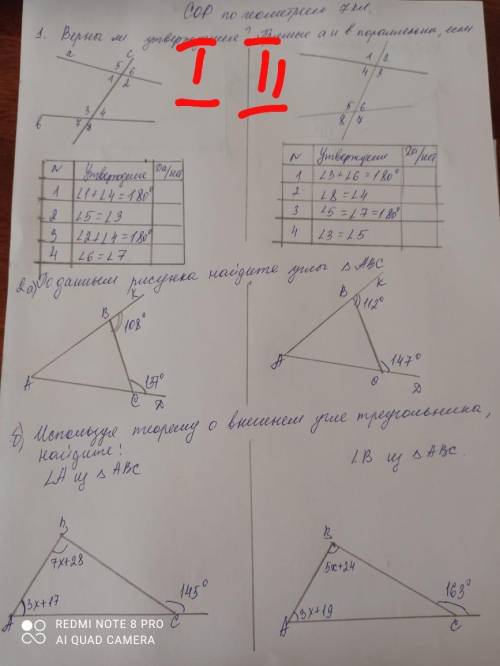 СОР по геометрии 7 кл.
1. Верны ли утверждения? Прямые a и b параллельны, если
I II
a c 5 6 1 2
3 4 b 7 8
1 2 4 3
5 6 8 7
N Утверждение Да/нет
1 ∠1+∠4=180°
2 ∠5=∠3
3 ∠2+∠4=180°
4 ∠6=∠7
N Утверждение Да/нет
1 ∠3+∠6=180°
2 ∠8=∠4
3 ∠5=∠7=180°
4 ∠3=∠5
2a) По данным рисунка найдите углы △ABC
K B 108° A 137° C D
K B 112° A 147° C D
б) Используя теорему о внешнем угле треугольника,
найдите:
∠A из △ABC
∠B из △ABC.
B 7x+28 3x+17 A 145° C
B 5x+24 3x+19 A 163° C
REDMI NOTE 8 PRO
AI QUAD CAMERA